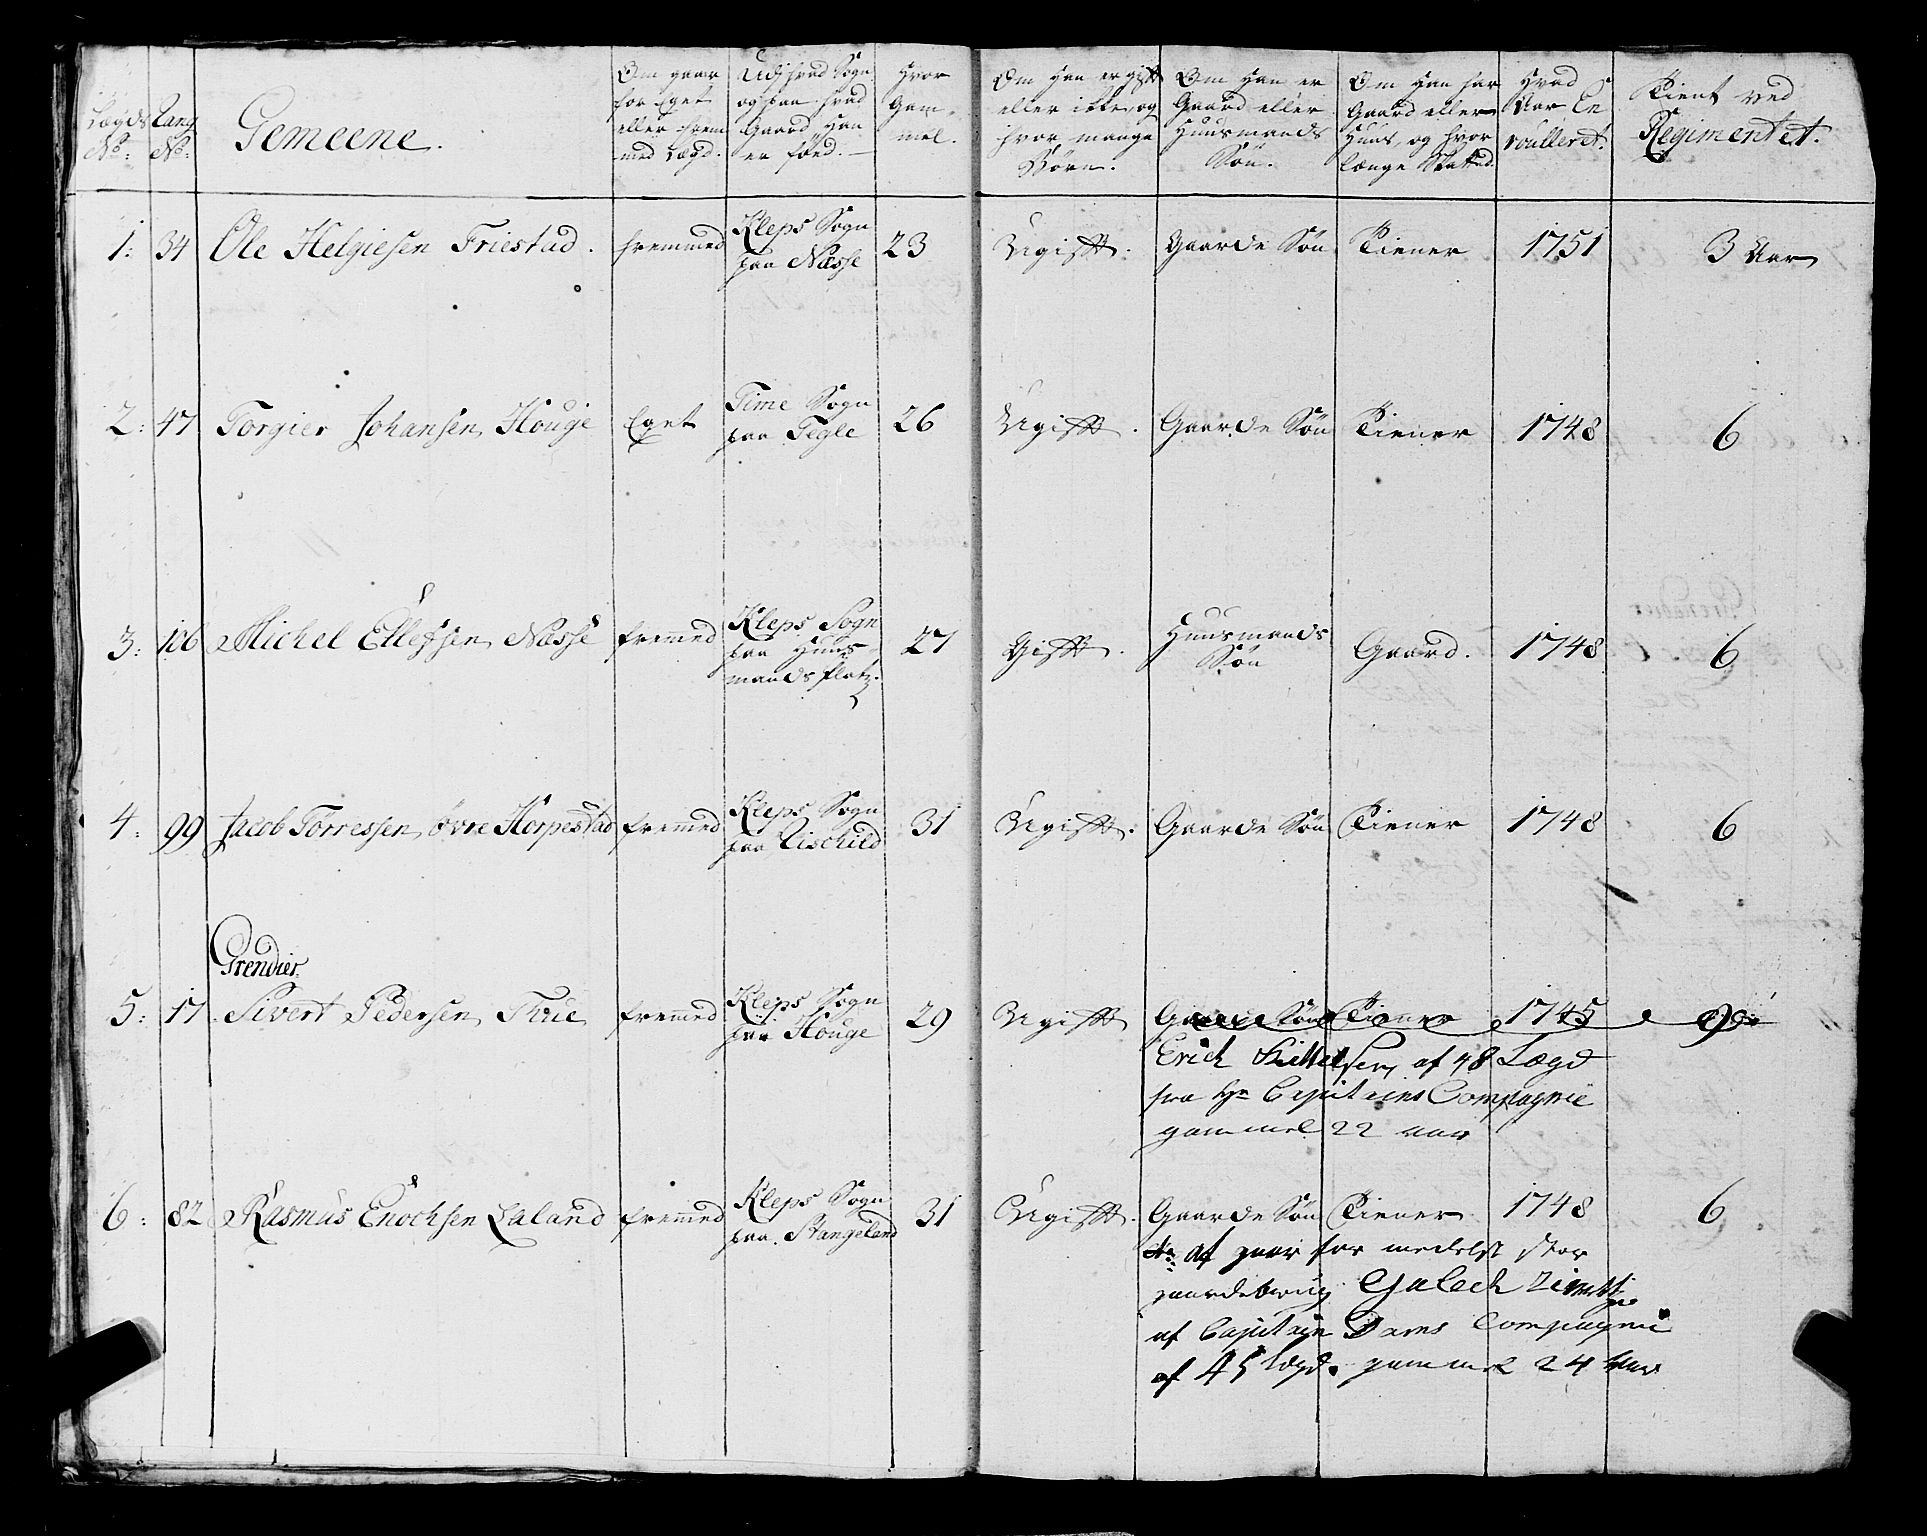 Lægds No: Rang No: Gemeene. Om gaar for Eget eller frem med Lægd. Udj hvad Sogn og paa hvad Gaard Han er föed. Hvor Gam mel. Om Han er gift eller ikke, og hvor mange Börn. Om Han er Gaard eller Huusmands Søn. Om Han har Gaard eller Huus, og hvor længe Hvad Aar En roulleret. Tient ved Regimentet.
1: 34 Ole Helgiesen Friestad. fremmed Kleps Sogn paa Næsse 23 Ugift. Gaarde Søn Tiener 1751 3 Aar
2: 47 Torgier Johansen Houge Eget Time Sogn paa Tegle 26 Ugift. Gaarde Søn Tiener 1748 6
3: 106 Michel Ellefsen Næsse fremed Kleps Sogn paa Huus mands platz. 27 Gift. Huusmands Søn Gaard. 1748 6
4: 99 Jacob Torressen øvre Horpestad fremed Kleps Sogn paa 31 Ugift. Gaarde Søn Tiener 1748 6
Grendier
5: 17 Sivert Pedersen Thue fremed Kleps Sogn paa Houge 29 Ugift Gaarde Søn Tiener 1745 9
Erich Kittelsen af 48 Lægd
fra Hr Capitains Compagnie
gammel 22 aar
6: 82 Rasmus Enochsen Laland fremed Kleps Sogn paa Stangeland 31 Ugift. Gaarde Søn Tiener 1748 6
af gaar for medelst stor
gaardebrug
af Capitain Dams Compagnie
af 45 Lægd. gammel 24 aar